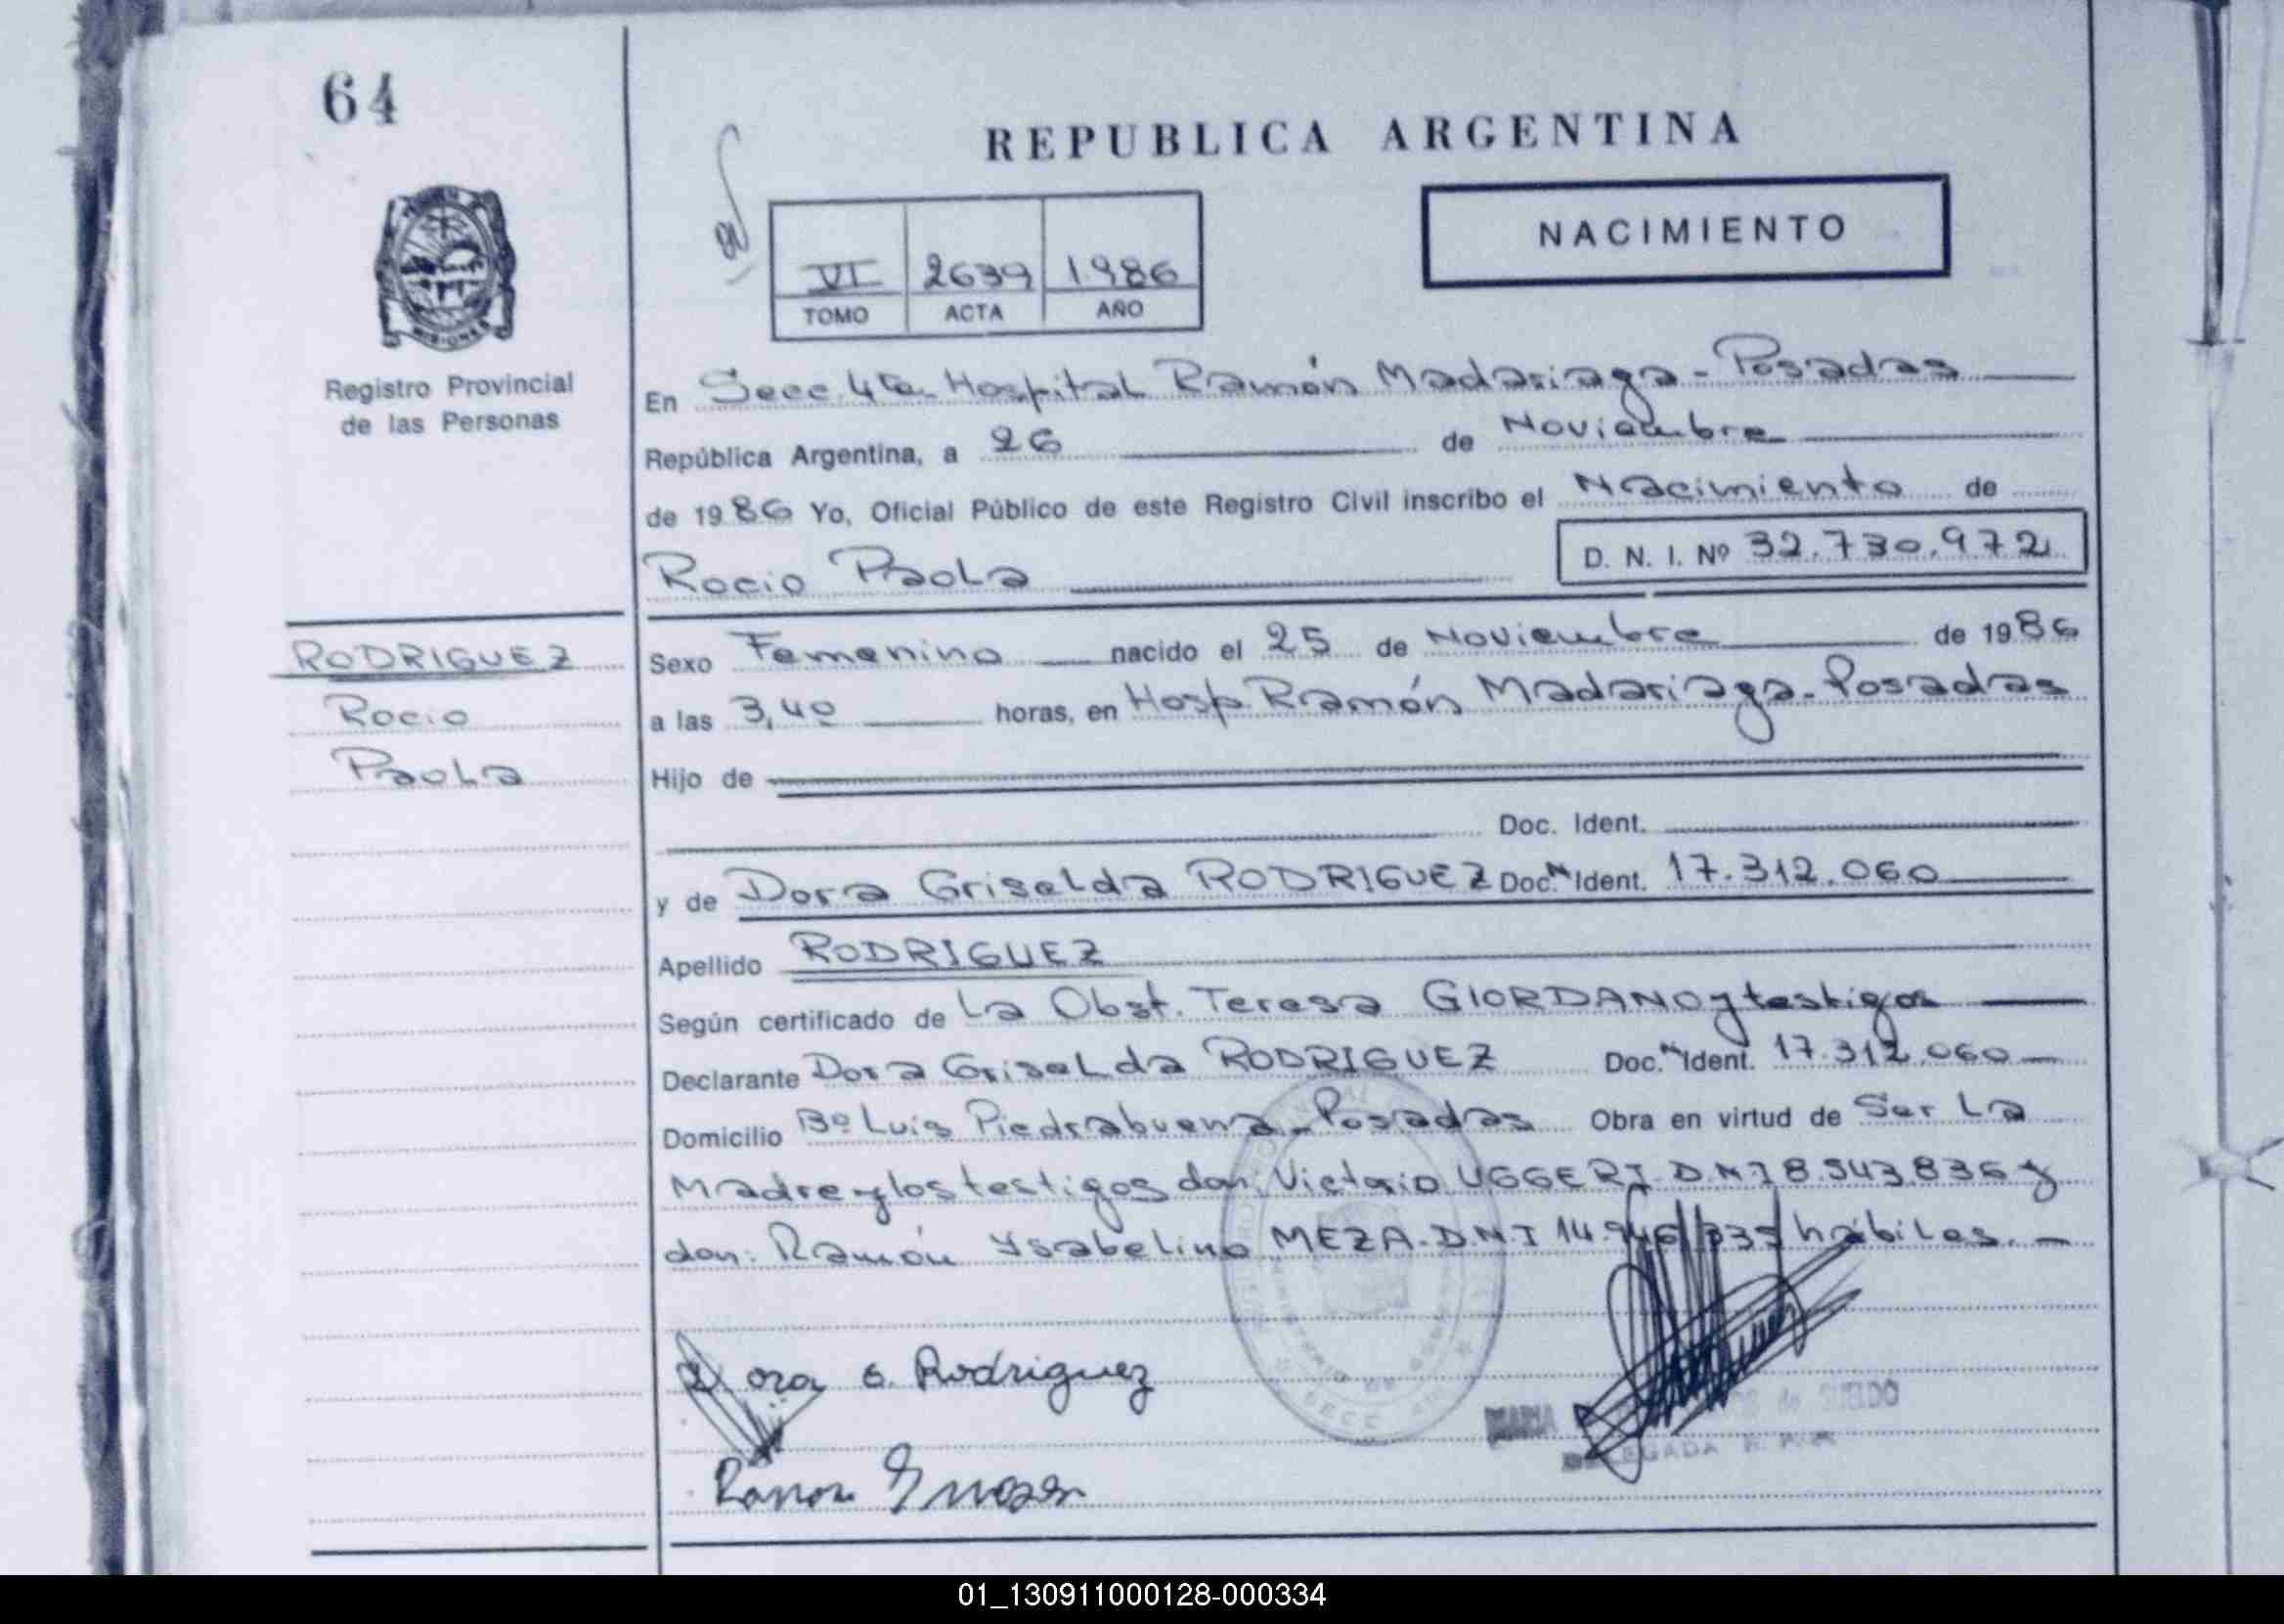 64
REPUBLICA ARGENTINA
NACIMIENTO
VI 2639 1986
TOMO ACTA AÑO
MISIONES
Registro Provincial
de las Personas
En Secc. 4ta Hospital Ramón Madariaga - Posadas
República Argentina, a 26 de Noviembre
de 1986 Yo, Oficial Público de este Registro Civil inscribo el Nacimiento de
D. N. I. Nº 32.730.972
Rocio Paola
RODRIGUEZ
Rocio
Paola
Sexo Femenino nacido el 25 de Noviembre de 1986
a las 3,40 horas, en Hosp Ramón Madariaga - Posadas
Hijo de
Doc. Ident.
y de Dora Griselda RODRIGUEZ Doc. N Ident. 17.312.060
Apellido RODRIGUEZ
Según certificado de La Obst. Teresa GIORDANO y testigos
Declarante Dora Griselda RODRIGUEZ Doc. N Ident. 17.312.060
Domicilio Bº Luis Piedrabuena - Posadas Obra en virtud de Ser La
Madre y los testigos don: Victorio UGGERI D.N.I 8.543.836 y
don: Ramón Ysabelino MEZA - D.N.I hábiles. -
Dora G. Rodriguez
Ramon
MARIA de SUELDO
DELEGADA
SECC
01_130911000128-000334